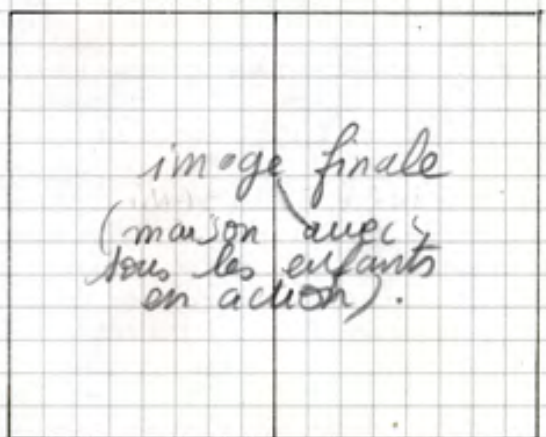 image finale
(maison avec
tous les enfants
en action).